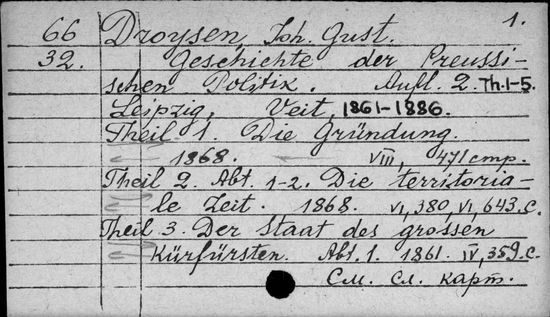 1.
66 Droysen, Joh. Gust.
32. Geschichte der Preussi-
schen Politik. Aufl. 2. Th.1-5.
Leipzig, Veit, 1861-1886.
Theil 1. Die Gründung.
1868. VIII, 471 стр.
Theil 2. Abt. 1-2. Die territoria-
le Zeit. 1868. VI, 380, VI, 643.c.
Theil 3. Der Staat des grossen
Kürfürsten. Abt. 1. 1861. IV, 359.c.
См. сл. карт.